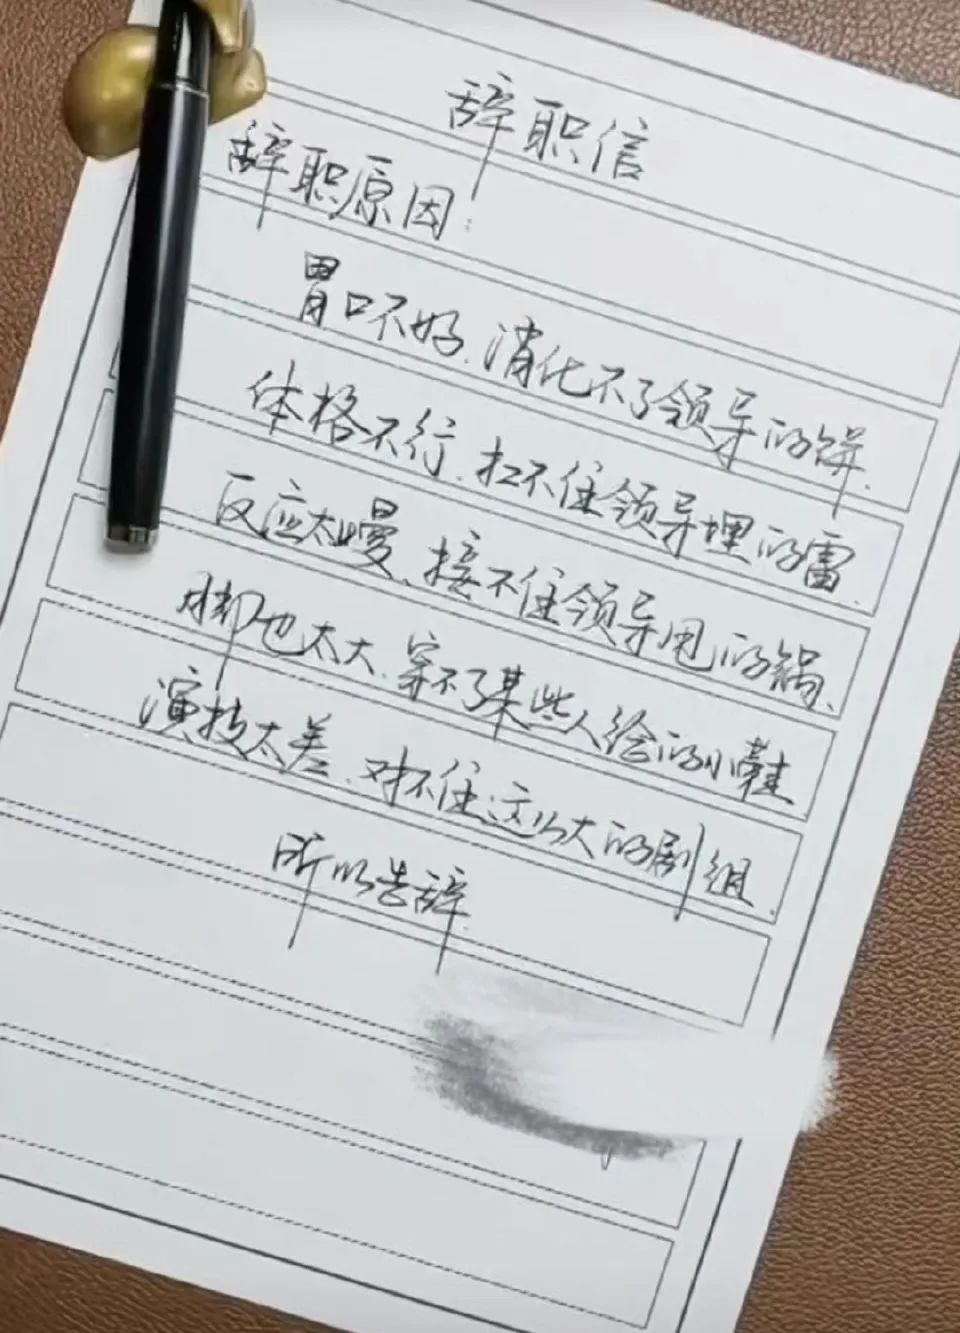 辞职信
辞职原因:
胃口不好.消化不了领导的饼.
体格不行.扛不住领导埋的雷.
反应太慢.接不住领导甩的锅.
脚也太大.穿不了某些人给的小鞋.
演技太差.对不住这么大的剧组.
所以告辞.